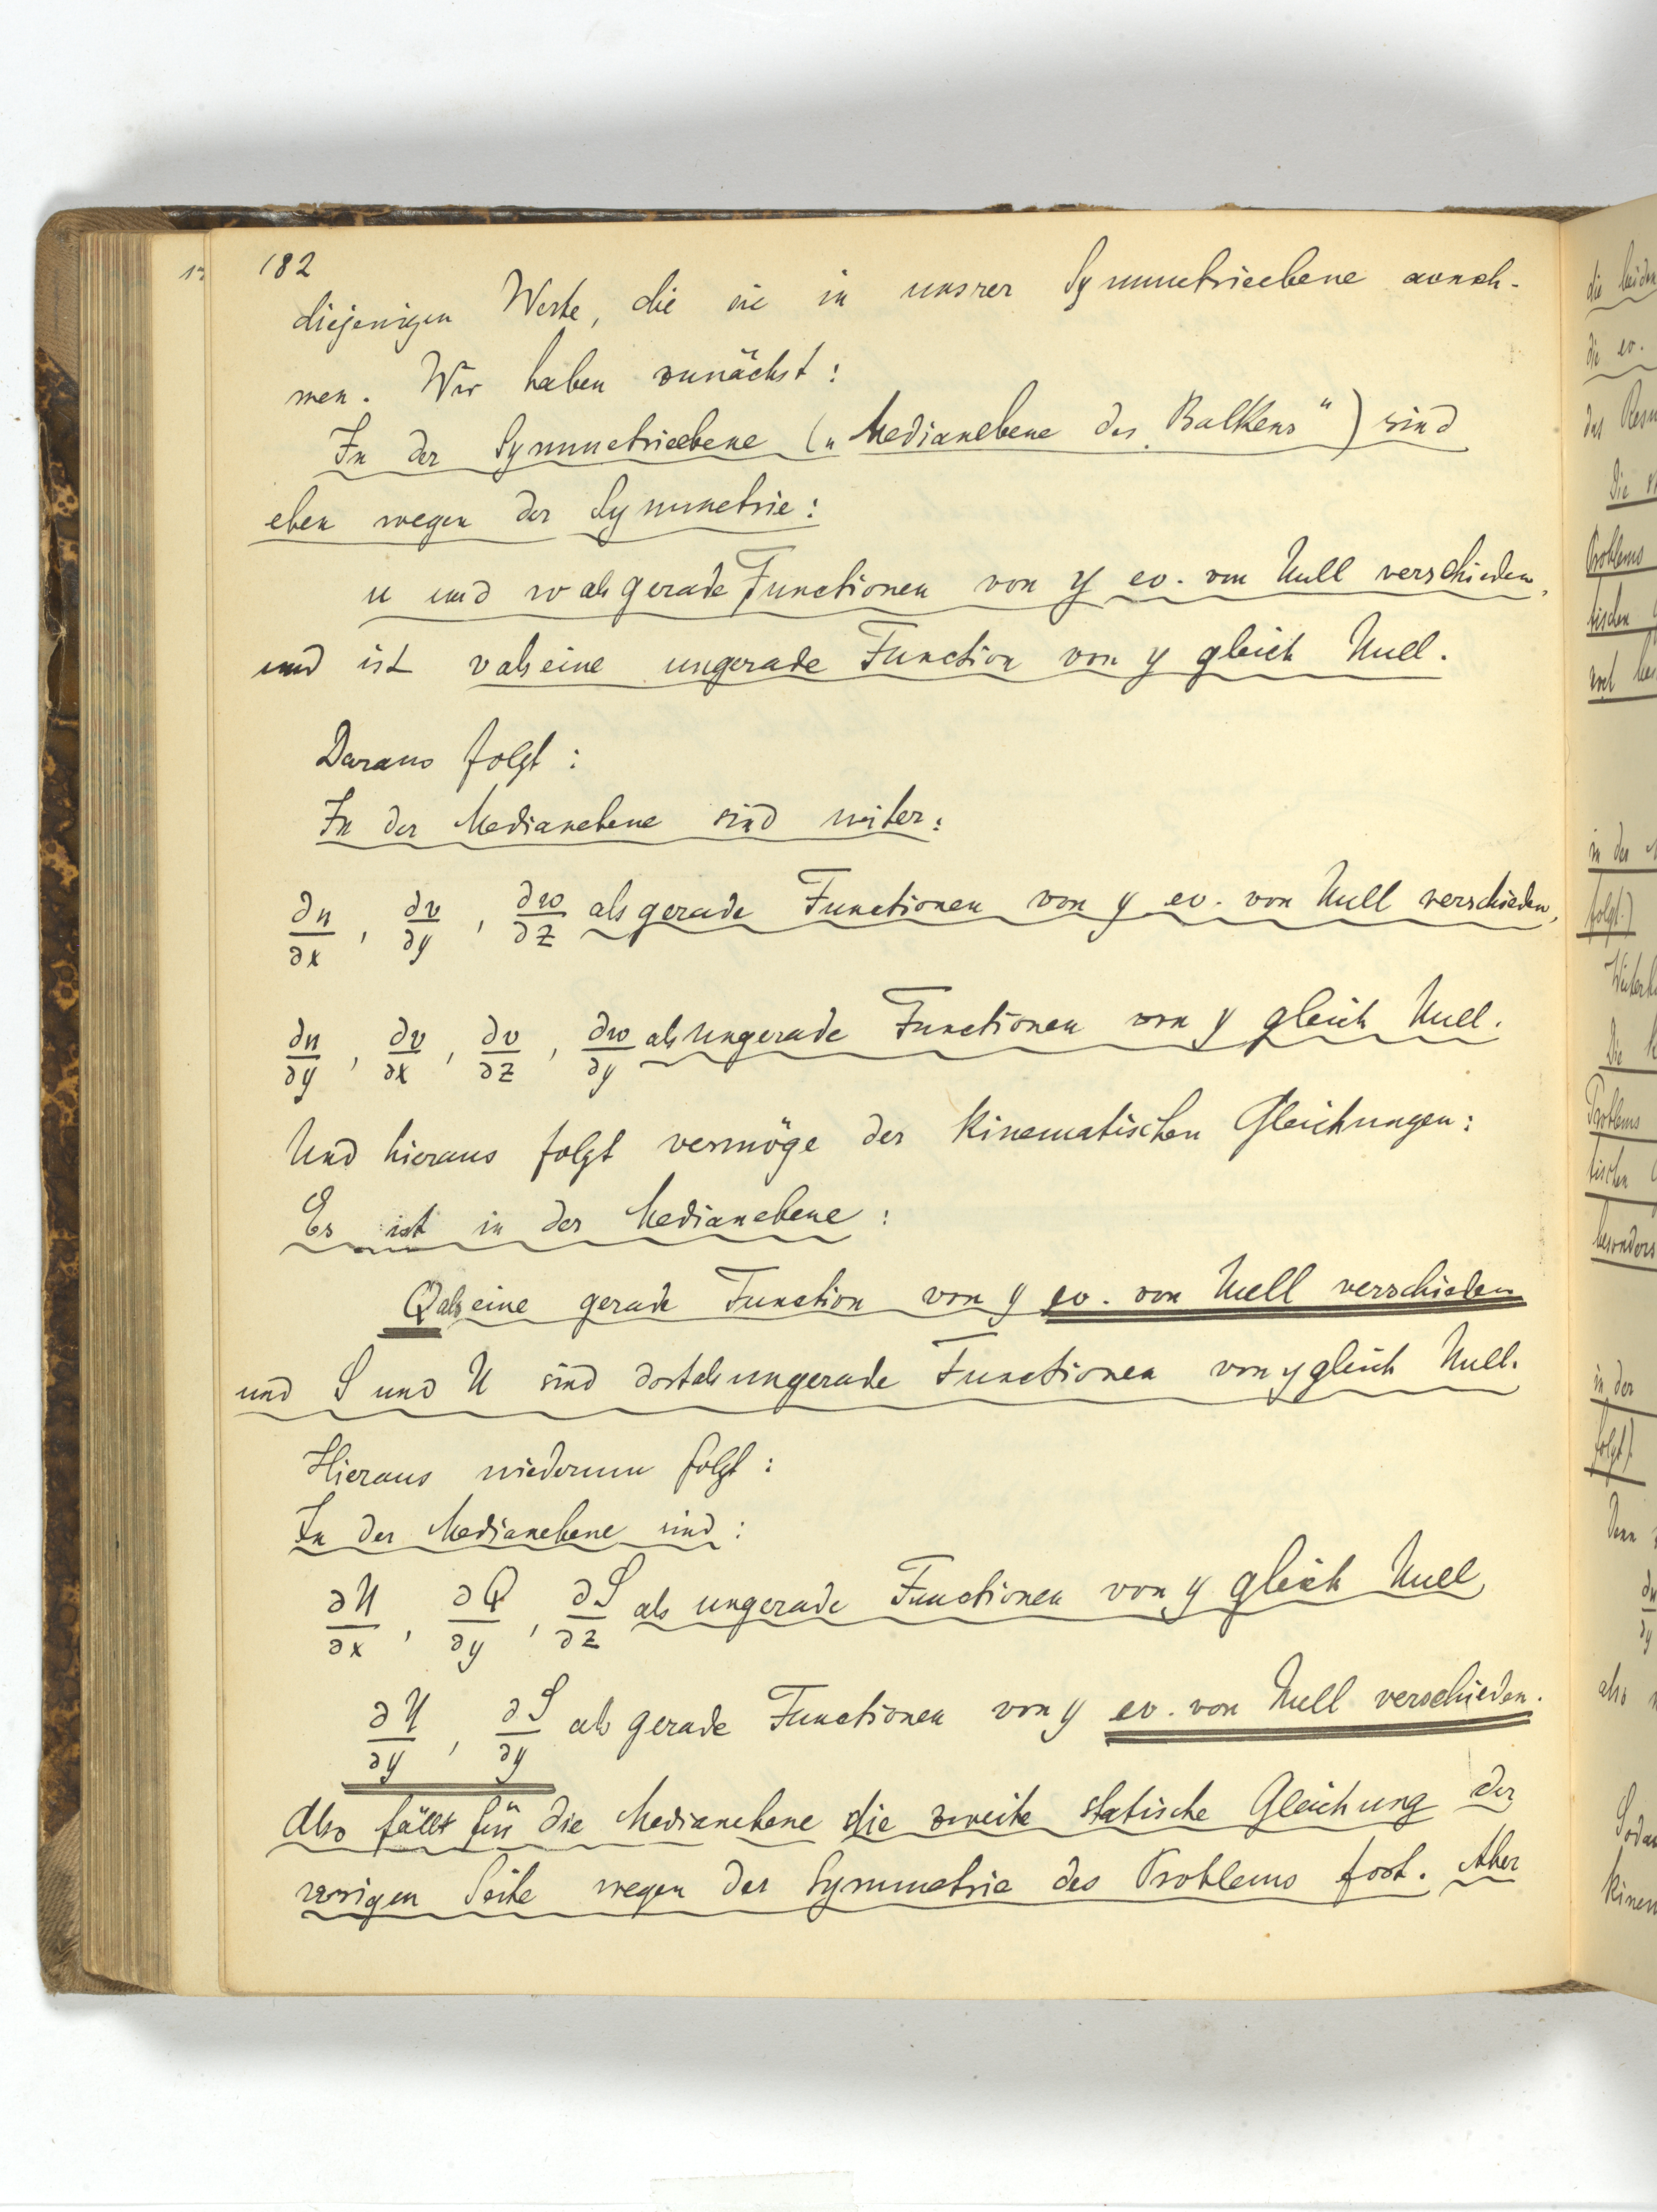 182
diejenigen Werte, die sie in unsrer Symmetrieebene anneh-
men. Wir haben zunächst:
In der Symmetrieebene („Medianebene des Balkens“) sind
eben wegen der Symmetrie:
u und w als gerade Functionen von y ev. von Null verschieden,
und ist v als eine ungerade Function von y gleich Null.
Daraus folgt:
In der Medianebene sind weiter:
∂u/∂x, ∂v/∂y, ∂w/∂z als gerade Functionen von y ev. von Null verschieden,
∂u/∂y, ∂v/∂x, ∂v/∂z, ∂w/∂y als ungerade Functionen von y gleich Null.
Und hieraus folgt vermöge der kinematischen Gleichungen:
Es ist in der Medianebene:
Q als eine gerade Function von y ev. von Null verschieden
und S und U sind dort als ungerade Functionen von y gleich Null.
Hieraus wiederum folgt:
In der Medianebene sind:
∂U/∂x, ∂Q/∂y, ∂S/∂z als ungerade Functionen von y gleich Null
∂U/∂y, ∂S/∂y als gerade Functionen von y ev. von Null verschieden.
Also fällt für die Medianebene die zweite statische Gleichung der
vorigen Seite wegen der Symmetrie des Problems fort. Aber